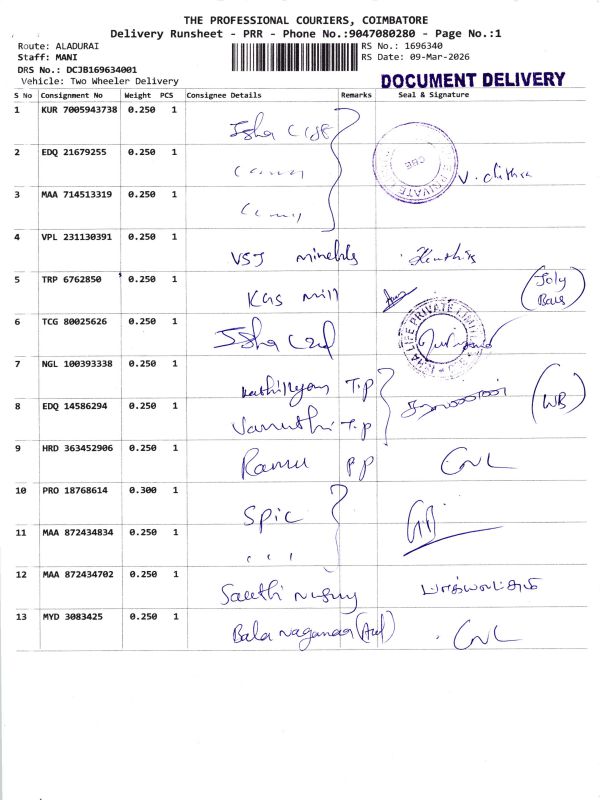 THE PROFESSIONAL COURIERS, COIMBATORE
Delivery Runsheet - PRR - Phone No.:9047080280 - Page No.:1
Route: ALADURAI
RS No.: 1696340
Staff: MANI
RS Date: 09-Mar-2026
DRS No.: DCJB169634001
Vehicle: Two Wheeler Delivery
DOCUMENT DELIVERY
S No Consignment No Weight PCS Consignee Details Remarks Seal & Signature
1 KUR 7005943738 0.250 1 Isha
2 EDQ 21679255 0.250 1 V. chithra
CBE
3 MAA 714513319 0.250 1
4 VPL 231130391 0.250 1 VSJ minerals
5 TRP 6762850 0.250 1 KGS mill
6 TCG 80025626 0.250 1 Isha
LIFE PRIVATE LIMITED
7 NGL 100393338 0.250 1 T.p
8 EDQ 14586294 0.250 1 T.p (WB)
9 HRD 363452906 0.250 1 Ramu P P
10 PRO 18768614 0.300 1 Spic
11 MAA 872434834 0.250 1
12 MAA 872434702 0.250 1
13 MYD 3083425 0.250 1 Bala